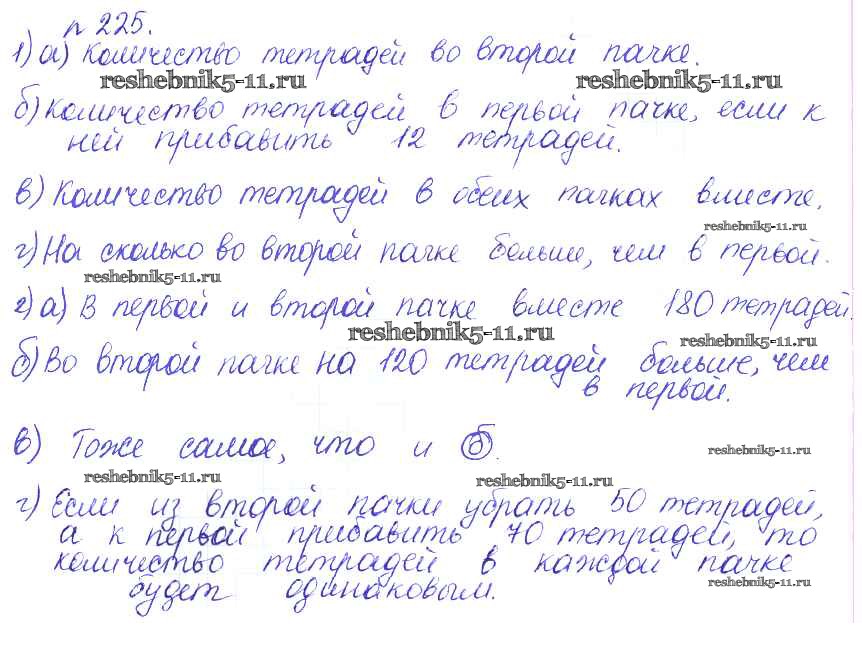 п 225.
1) а) Количество тетрадей во второй пачке.
reshebnik5-11.ru reshebnik5-11.ru
б) Количество тетрадей в первой пачке, если к
ней прибавить 12 тетрадей.
в) Количество тетрадей в обеих пачках вместе.
reshebnik5-11.ru
г) На сколько во второй пачке больше, чем в первой.
reshebnik5-11.ru
2) а) В первой и второй пачке вместе 180 тетрадей.
reshebnik5-11.ru reshebnik5-11.ru
б) Во второй пачке на 120 тетрадей больше, чем
в первой.
в) Тоже самое, что и б.
reshebnik5-11.ru
reshebnik5-11.ru reshebnik5-11.ru
г) Если из второй пачки убрать 50 тетрадей,
а к первой прибавить 70 тетрадей, то
количество тетрадей в каждой пачке
reshebnik5-11.ru
будет одинаковым.